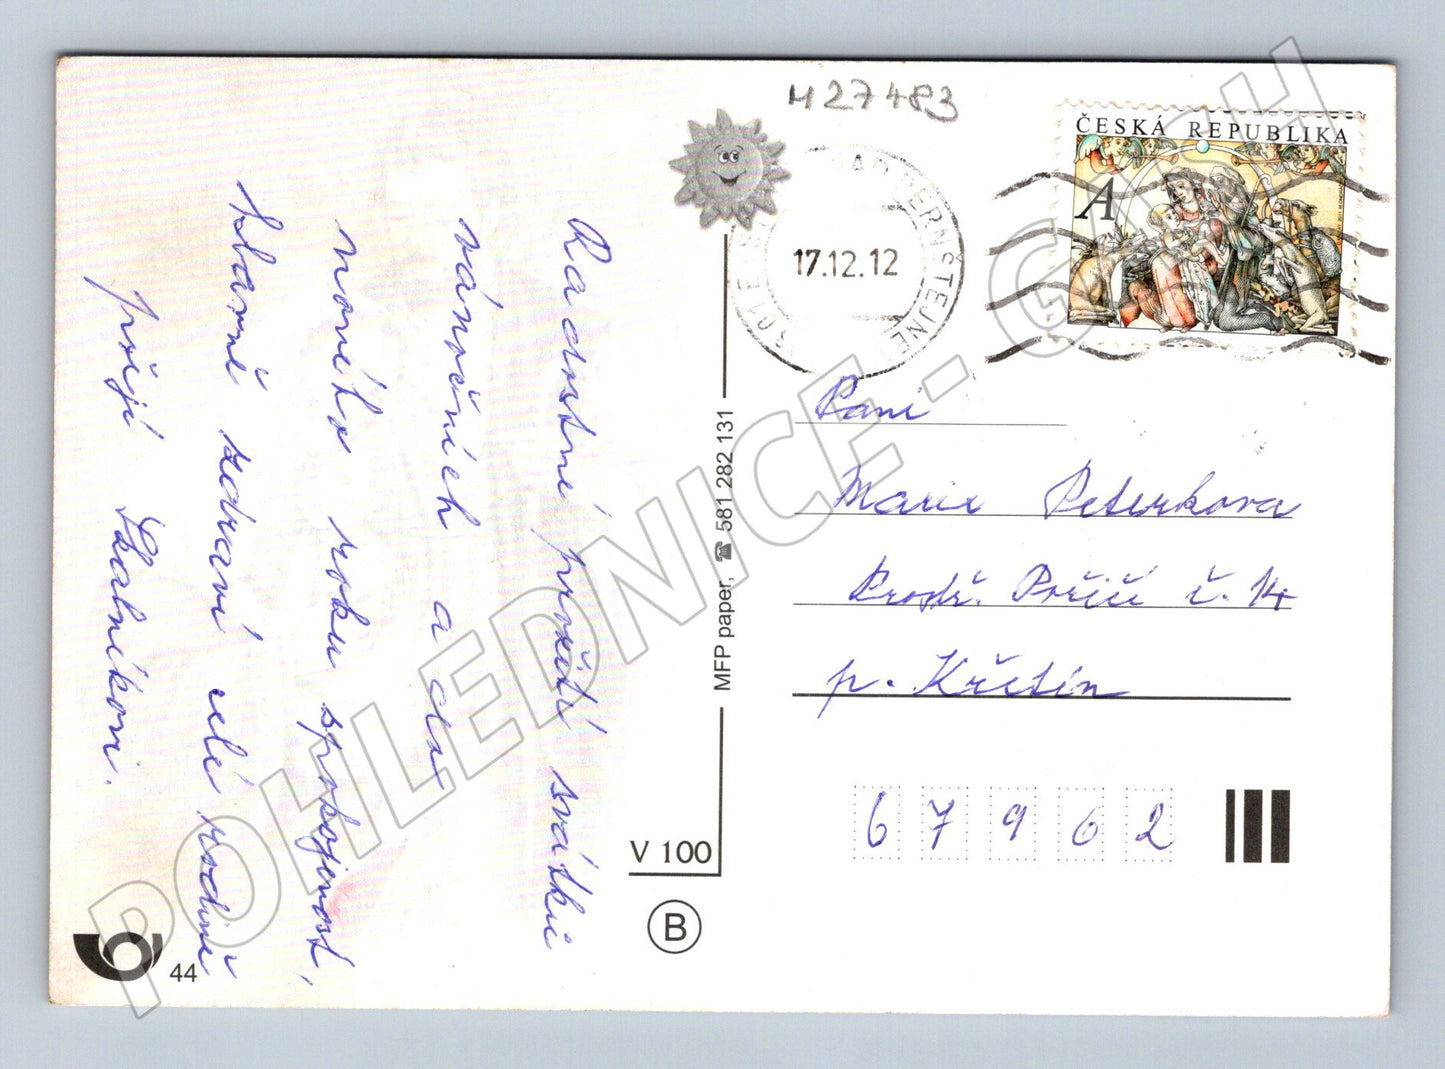 H27483
ČESKÁ REPUBLIKA
A
17.12.12
Radostné prožití svátků
vánočních a do
nového roku spokojenost,
hlavně zdraví celé rodině
přejí Skalníkovi.
MFP paper, ☎ 581 282 131
V 100
B
44
Paní
Marie Peterkova
Prostř. Poříčí č. 14
p. Křetín
67962
POHLEDNICE - CZ.CH